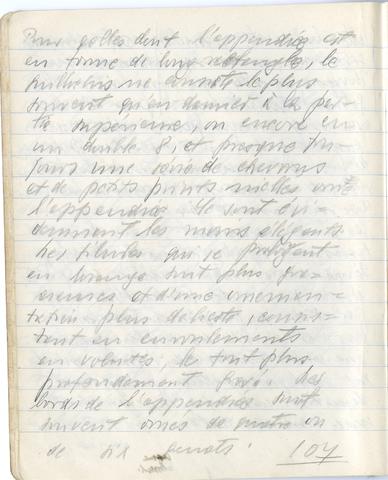 Pour celles dont l'appendice est
en forme de long rectangle, le
ne consiste le plus
souvent qu'en damier à la par-
tie supérieure, ou encore en
un double 8, et presque tou-
jours une série de chevrons
et de petits points
l'appendice. Ce sont évi-
demment les moins élégants.
Les fibules qui se prolongent
en losange sont plus gra-
cieuses et d'une ornemen-
tation plus délicate, consis-
tant en enroulements
en volutes, le tout plus
profondément gravé. Les
bords de l'appendice sont
souvent ornés de quatre ou
de six
107